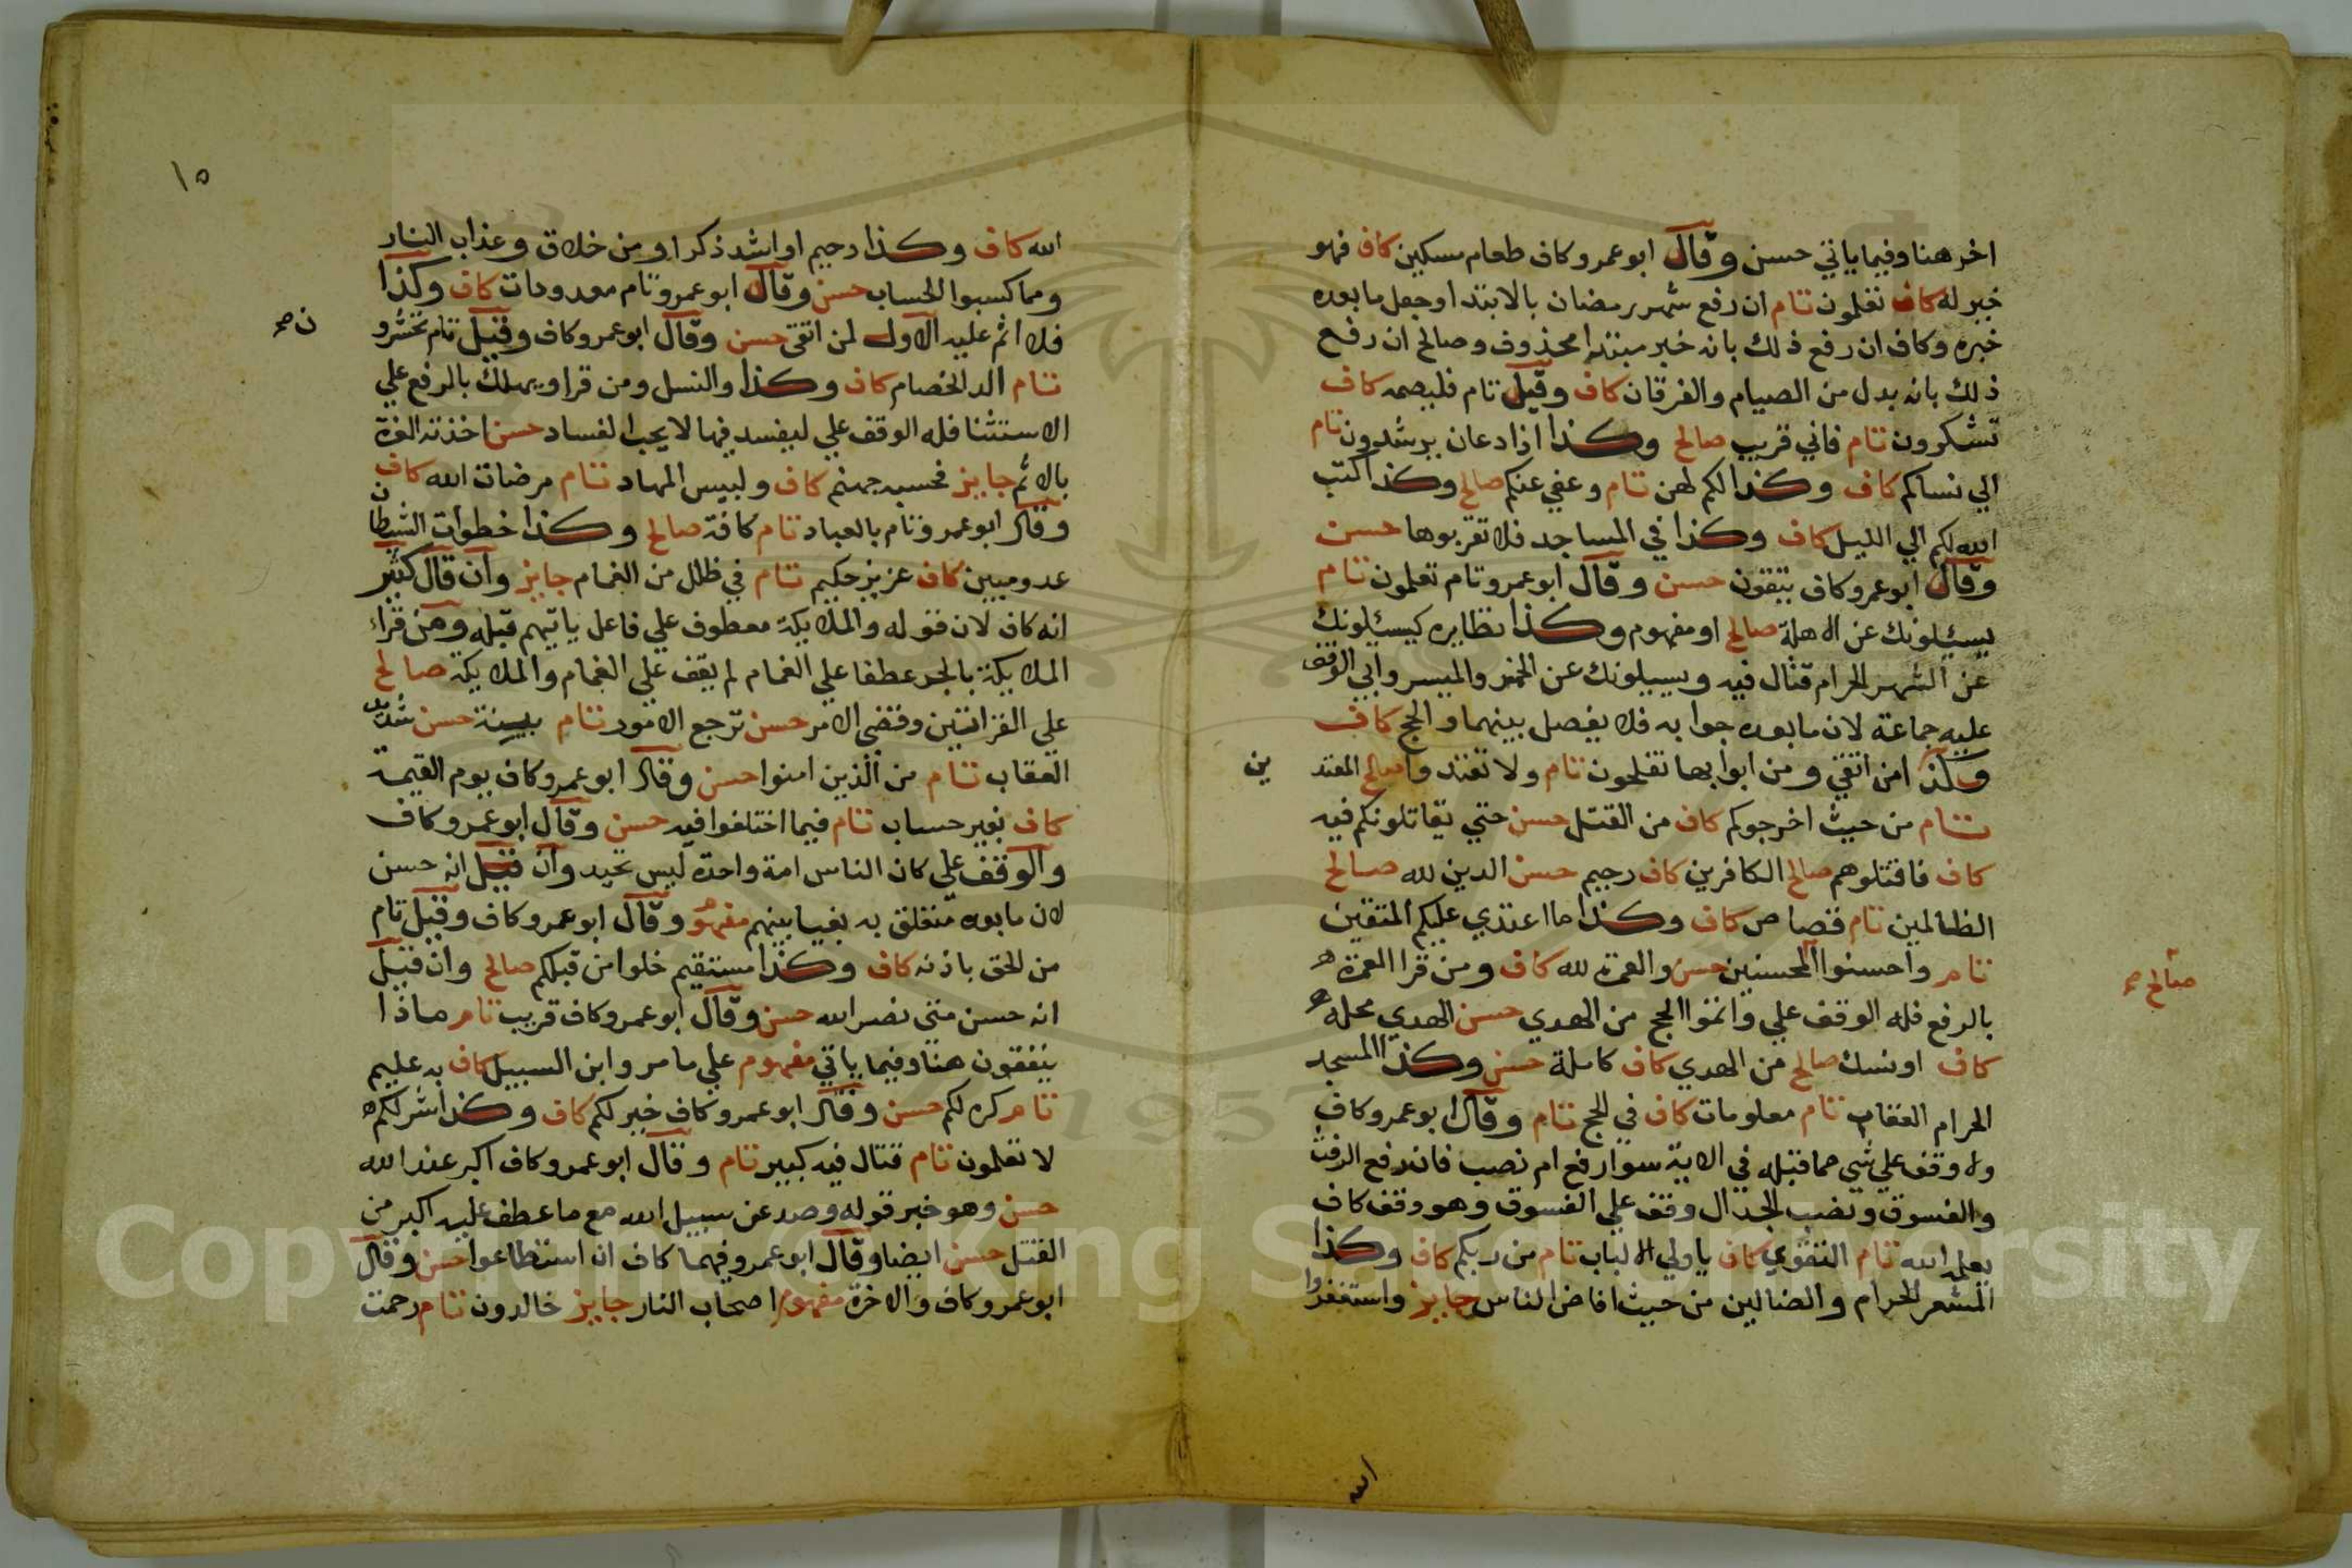 اخر هنا وفيما ياتي حسن وقال ابو عمرو كاف طعام مسكين كاف فهو
خير له كاف تعلمون تام ان رفع شهر رمضان بالابتدا وجعل ما بعده
خبره وكاف ان رفع ذلك بانه خبر مبتدا محذوف وصالح ان رفع
ذلك بانه بدل من الصيام والفرقان كاف وقيل تام فليصمه كاف
تشكرون تام فاني قريب صالح وكذا اذا دعان يرشدون تام
الي نسايكم كاف وكذا لكم لهن تام وعفي عنكم صالح وكذا كتب
الله لكم الي الليل كاف وكذا في المساجد فلا تقربوها حسن
وقال ابو عمرو كاف يتقون حسن وقال ابو عمرو تام تعلمون تام
يسيلونك عن الاهلة صالح او مفهوم وكذا نظايره كيسيلونك
عن الشهر الحرام قتال فيه ويسيلونك عن الخمر والميسر وابي الوقف
عليه جماعة لان ما بعده جوابه فلا يفصل بينهما والحج كاف
وكذا من اتقي ومن ابوابها تفلحون تام ولا تعتدوا صالح المعتد
ين
تام من حيث اخرجوكم كاف من القتل حسن حتي يقاتلوكم فيه
كاف فاقتلوهم صالح الكافرين كاف رحيم حسن الدين لله صالح
الظالمين تام قصاص كاف وكذا ما اعتدي عليكم المتقين
تام واحسنوا المحسنين حسن والعمرة لله كاف ومن قرا العمرة
صالح
بالرفع فله الوقف علي واتموا الحج من الهدي حسن الهدي محله
كاف او نسك صالح من الهدي كاف كاملة حسن وكذا المسجد
الحرام العقاب تام معلومات كاف في الحج تام وقال ابو عمرو كاف
ولا وقف علي شي مما قبله في الاية سوا رفع ام نصب فان رفع الرفث
والفسوق ونصب الجدال وقف علي الفسوق وهو وقف كاف
يعلمه الله تام التقوي كاف ياولي الالباب تام من ربكم كاف وكذا
المشعر الحرام والضالين من حيث افاض الناس جايز واستغفروا
الله
١٥
الله كاف وكذا رحيم او اشد ذكرا ومن خلاق وعذاب النار
ومما كسبوا الحساب حسن وقال ابو عمرو تام معدودات كاف وكذا
فلا اثم عليه الاول لمن اتقي حسن وقال ابو عمرو كاف وقيل تام تحشرو
ن صح
تام الد الخصام كاف وكذا والنسل ومن قرا ويهلك بالرفع علي
الاستئنا فله الوقف علي ليفسد فيها لا يحب الفساد حسن اخذته العزة
بالاثم جايز فحسبه جهنم كاف ولبيس المهاد تام مرضات الله كاف
وقال ابو عمرو تام بالعباد تام كافة صالح وكذا خطوات الشيطان
عدو مبين كاف عزيز حكيم تام في ظلل من الغمام جايز وان قال كثير
انه كاف لان قوله والملايكة معطوف علي فاعل ياتيهم قبله ومن قراء
الملايكة بالجر عطفا علي الغمام لم يقف علي الغمام والملايكة صالح
علي القراتين وقضي الامر حسن ترجع الامور تام بينة حسن شديد
العقاب تام من الذين امنوا حسن وقال ابو عمرو كاف يوم القيمة
كاف بغير حساب تام فيما اختلفوا فيه حسن وقال ابو عمرو كاف
والوقف علي كان الناس امة واحدة ليس بجيد وان قيل انه حسن
لان ما بعده متعلق به بغيا بينهم مفهوم وقال ابو عمرو كاف وقيل تام
من الحق باذنه كاف وكذا مستقيم خلوا من قبلكم صالح وان قيل
انه حسن متي نصر الله حسن وقال ابو عمرو كاف قريب تام ماذا
ينفقون هنا وفيما ياتي مفهوم علي ما مر وابن السبيل كاف به عليم
تام كره لكم حسن وقال ابو عمرو كاف خير لكم كاف وكذا شر لكم
لا تعلمون تام قتال فيه كبير تام وقال ابو عمرو كاف اكبر عند الله
حسن وهو خبر قوله وصد عن سبيل الله مع ما عطف عليه اكبر من
القتل حسن ايضا وقال ابو عمرو فيهما كاف ان استطاعوا حسن وقال
ابو عمرو كاف والاخرة مفهوم اصحاب النار جايز خالدون تام رحمت
Copyright © King Saud University
1957